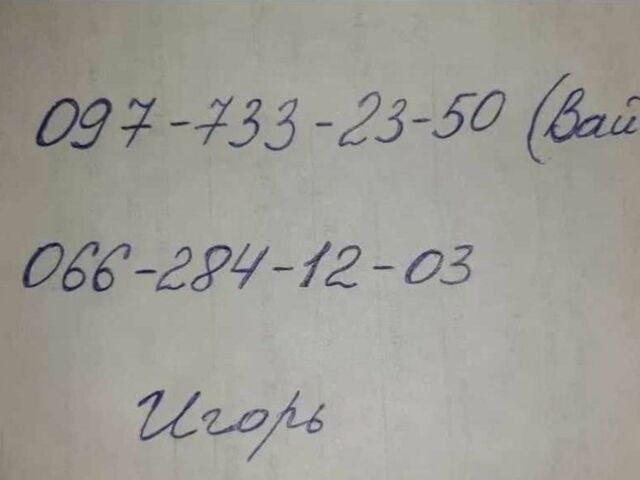 097-733-23-50 (Вай
066-284-12-03
Игорь